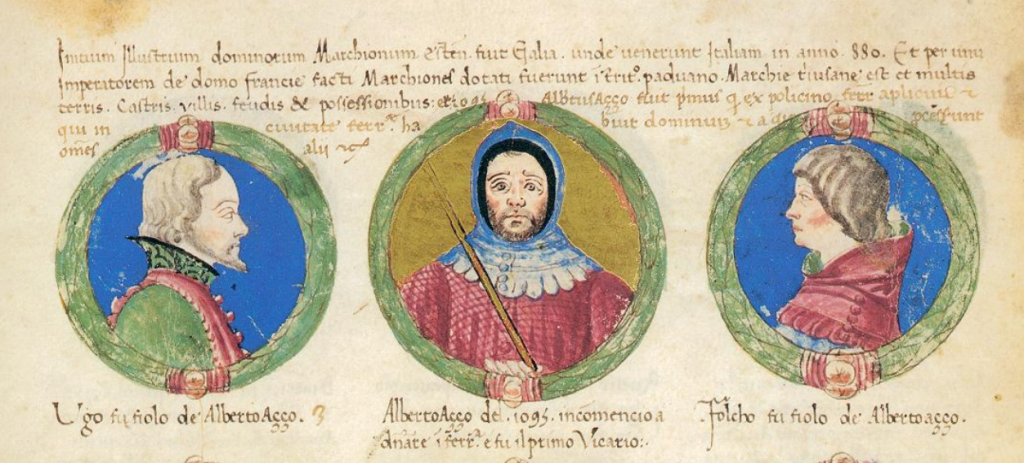 Initium Illustrium dominorum Marchionum Esten. fuit Galia. unde venerunt Italiam in anno 880. Et per unu
Imperatorem de domo francie facti Marchiones dotati fuerunt paduano. Marchie est et multis
terris. Castris, villis, feudis & possessionibus: 1095 AlbtusAzzo fuit pmus q ex policino ferr aplicuit
qui in civitate ferr. ha buit dominium
omes alii
Ugo fu fiolo de AlbertoAzzo. 3
AlbertoAzzo del 1095. incomencio a
dnare i ferr.a e fu il primo Vicario:.
Folcho fu fiolo de Albertoazzo.